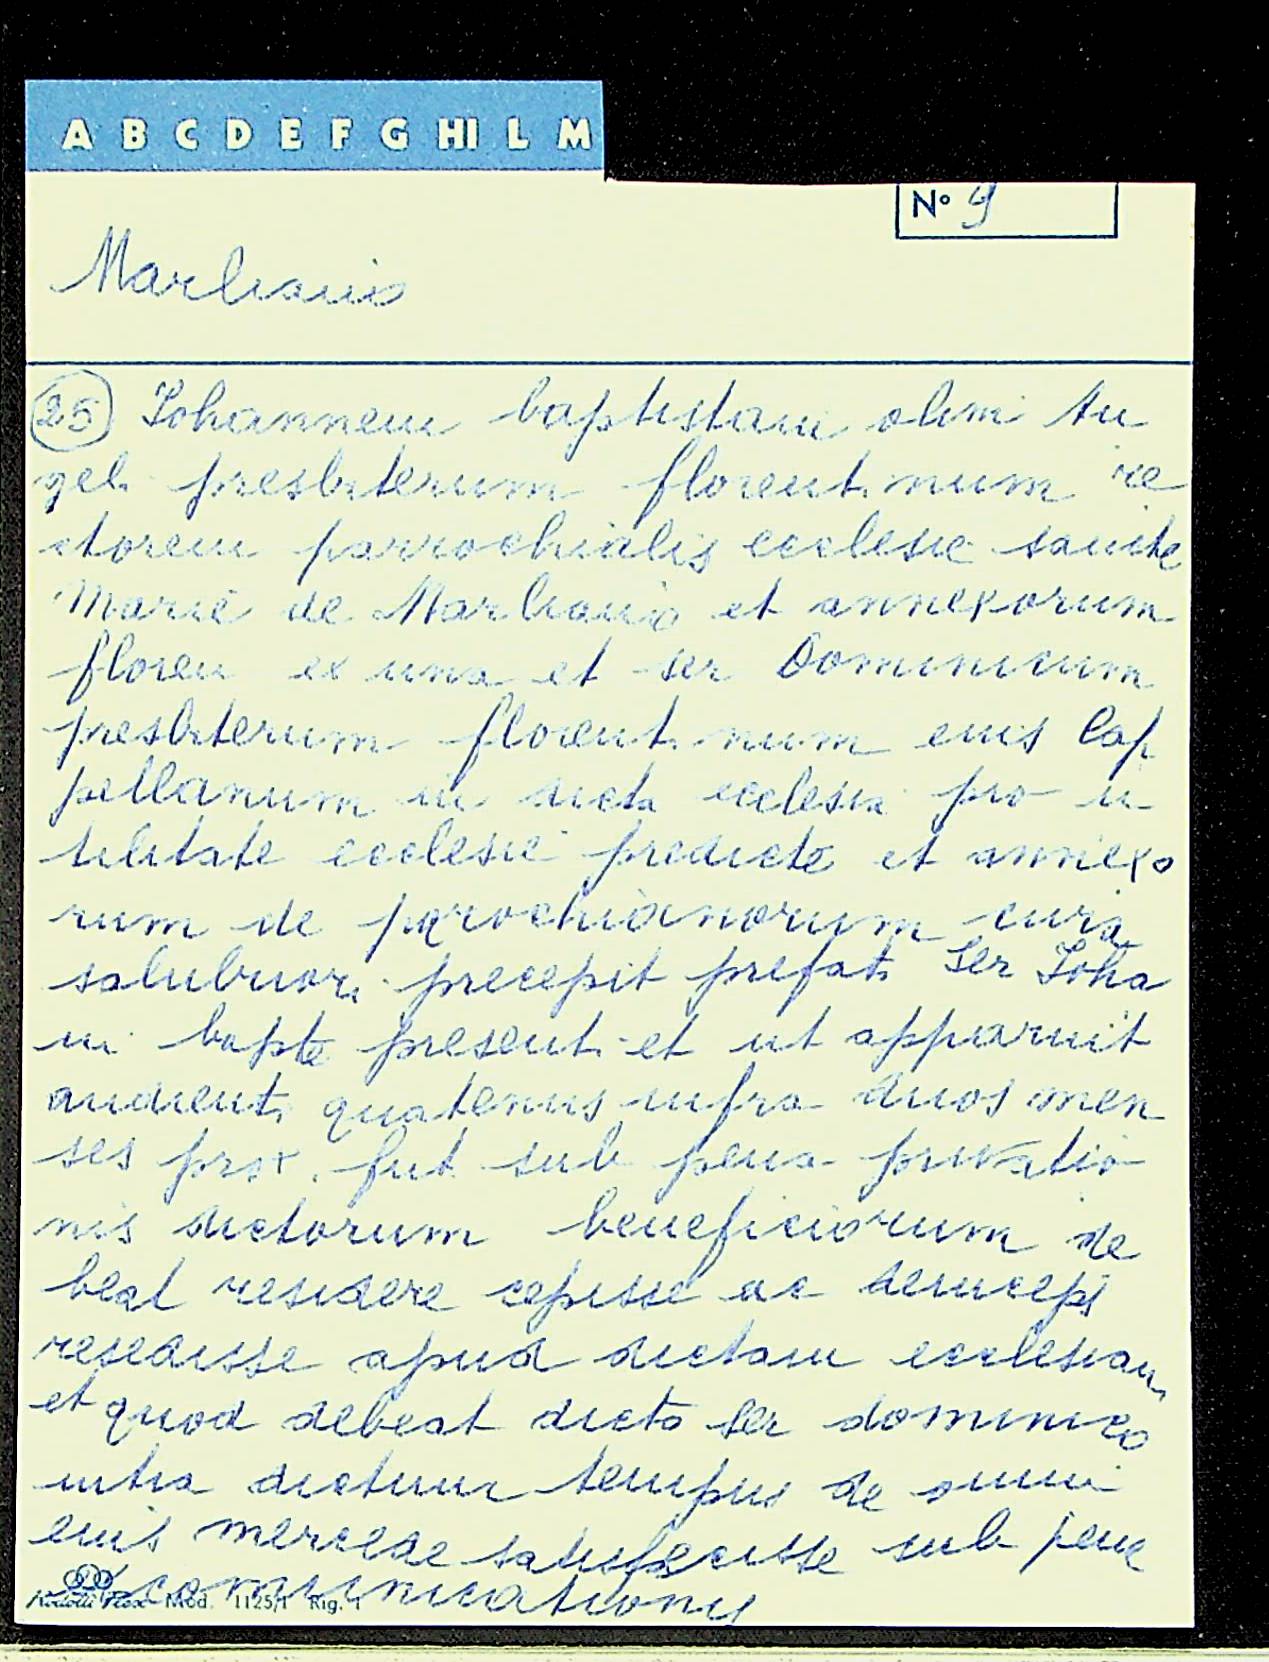 A B C D E F G HI L M
N° 9
Marlianis
25 Johannem baptistam olim An
geli presbiterum florentinum re
ctorem parrochialis ecclesie sancte
Marie de Marlianis et annexorum
floren ex una et ser Dominicum
presbiterum florentinum eius Cap
pellanum in dicta ecclesia pro u
tilitate ecclesie predicte et annexo
rum de parochianorum cura
salubriori precepit prefati Ser Joha
ni bapte presenti et ut apparuit
audienti quatenus infra duos men
ses prox. fut sub pena privatio
nis dictorum beneficiorum de
beat residere cepisse ac deinceps
resedisse apud dictam ecclesiam
et quod debeat dicto ser dominico
intra dictum tempus de omni
eius mercede satisfecisse sub pene
excomunicationis
Mod. 1125/1 Rig. 1